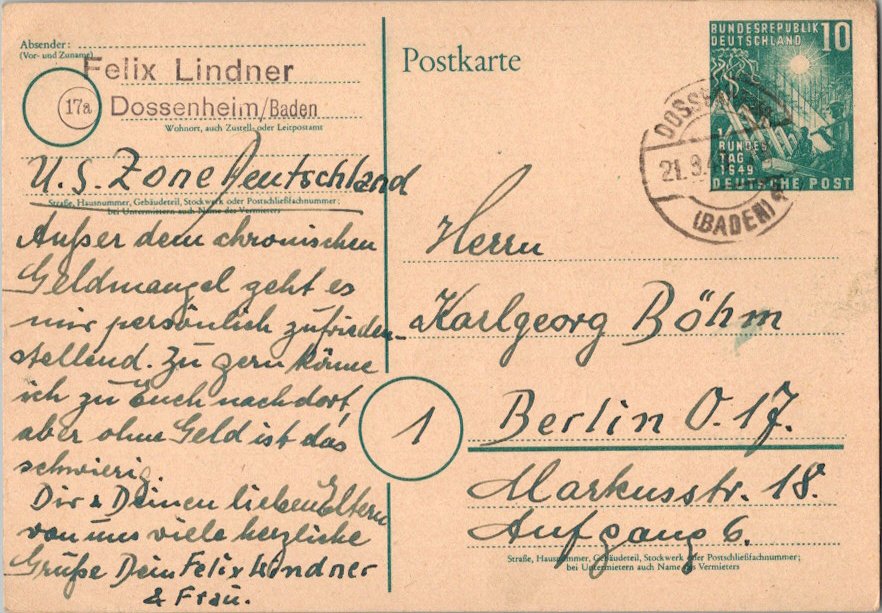 Absender:
(Vor- und Zuname)
Felix Lindner
17a
Dossenheim/Baden
Wohnort, auch Zustell- oder Leitpostamt
U.S. Zone Deutschland
Straße, Hausnummer, Gebäudeteil, Stockwerk oder Postschließfachnummer;
bei Untermietern auch Name des Vermieters
Außer dem chronischen
Geldmangel geht es
mir persönlich zufrieden-
stellend. Zu gern käme
ich zu Euch nach dort,
aber ohne Geld ist das
schwierig.
Dir & Deinen lieben Eltern
von uns viele herzliche
Grüße Dein Felix Lindner
& Frau.
Postkarte
BUNDESREPUBLIK
DEUTSCHLAND
10
1
BUNDES
TAG
1949
DEUTSCHE POST
21. 9.
(BADEN)
Herrn
Karlgeorg Böhm
1
Berlin O.17.
Markusstr. 18.
Aufgang 6.
Straße, Hausnummer, Gebäudeteil, Stockwerk oder Postschließfachnummer;
bei Untermietern auch Name des Vermieters